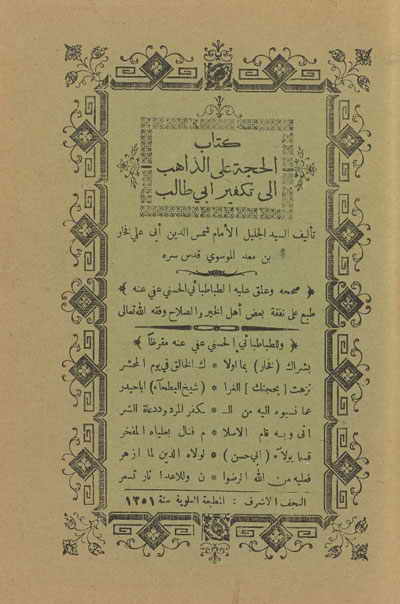 كتاب
الحجة على الذاهب
الى تكفير ابي طالب
تأليف السيد الجليل الأمام شمس الدين أبى علي فخار
بن معد الموسوي قدس سره
صححه وعلق عليه الطباطبائي الحسني عفي عنه
طبع على نفقة بعض أهل الخير والصلاح وفقه الله تعالى
وللطباطبائي الحسني عفي عنه مقرظاً
بشراك (فخار) بما اولا * ك الخالق في يوم المحشر
نزهت [بحجتك] الغرا * (شيخ البطحآء) اباحيدر
عما نسبوه اليه من الـ * كفر المردود دعاة الشر
انى وبه قام الاسلا * م فنال بعلياه المفخر
قسما بولآء (ابي حسن) * لولاه الدين لما ازهر
فعليه من الله الرضوا * ن وللاعدا نار تسعر
النجف الاشرف : المطبعة العلوية سنة ١٣٥١